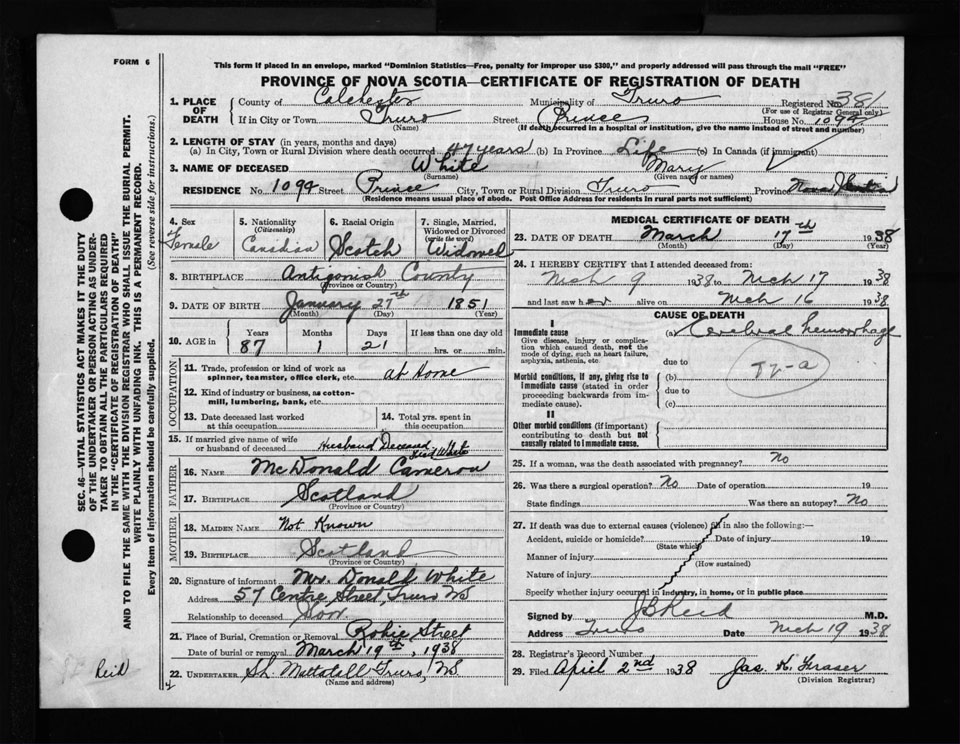 FORM 6
This form if placed in an envelope, marked "Dominion Statistics—Free, penalty for improper use $300," and properly addressed will pass through the mail "FREE"
PROVINCE OF NOVA SCOTIA—CERTIFICATE OF REGISTRATION OF DEATH
SEC. 46—VITAL STATISTICS ACT MAKES IT THE DUTY
OF THE UNDERTAKER OR PERSON ACTING AS UNDER-
TAKER TO OBTAIN ALL THE PARTICULARS REQUIRED
IN THE "CERTIFICATE OF REGISTRATION OF DEATH"
AND TO FILE THE SAME WITH THE DIVISION REGISTRAR WHO SHALL ISSUE THE BURIAL PERMIT.
WRITE PLAINLY WITH UNFADING INK. THIS IS A PERMANENT RECORD.
Every item of information should be carefully supplied. (See reverse side for instructions.)
1. PLACE OF DEATH County of Colchester Municipality of Truro Registered No. 381
(For use of Registrar General only)
If in City or Town Truro Street Prince House No. 1094
(Name) (If death occurred in a hospital or institution, give the name instead of street and number)
2. LENGTH OF STAY (in years, months and days)
(a) In City, Town or Rural Division where death occurred 47 years (b) In Province Life (c) In Canada (if immigrant)
3. NAME OF DECEASED White Mary
(Surname) (Given name or names)
RESIDENCE No. 1094 Street Prince City, Town or Rural Division Truro Province Nova Scotia
(Residence means usual place of abode. Post Office Address for residents in rural parts not sufficient)
4. Sex 5. Nationality (Citizenship) 6. Racial Origin 7. Single, Married, Widowed or Divorced (write the word)
Female Canadian Scotch Widowed
8. BIRTHPLACE Antigonish County
(Province or Country)
9. DATE OF BIRTH January 27th 1851
(Month) (Day) (Year)
10. AGE in Years Months Days If less than one day old
87 1 21 hrs. or min.
OCCUPATION
11. Trade, profession or kind of work as spinner, teamster, office clerk, etc. at Home
12. Kind of industry or business, as cotton-mill, lumbering, bank, etc.
13. Date deceased last worked at this occupation
14. Total yrs. spent in this occupation
15. If married give name of wife or husband of deceased Husband Deceased White
FATHER
16. NAME McDonald Cameron
17. BIRTHPLACE Scotland
(Province or Country)
MOTHER
18. MAIDEN NAME Not Known
19. BIRTHPLACE Scotland
(Province or Country)
20. Signature of informant Mr. Donald White
Address 57 Centre Street, Truro NS
Relationship to deceased Son
21. Place of Burial, Cremation or Removal Robie Street
Date of burial or removal March 19th, 1938
22. UNDERTAKER Mattatall Truro, NS
(Name and address)
Reid
MEDICAL CERTIFICATE OF DEATH
23. DATE OF DEATH March 17th 1938
(Month) (Day) (Year)
24. I HEREBY CERTIFY that I attended deceased from:
Mch 9 1938 to Mch 17 1938
and last saw her alive on Mch 16 1938
CAUSE OF DEATH
I
Immediate cause (a) Cerebral hemorrhage
Give disease, injury or complication which caused death, not the mode of dying, such as heart failure, asphyxia, asthenia, etc.
due to
Morbid conditions, if any, giving rise to immediate cause (stated in order proceeding backwards from immediate cause).
(b)
due to
(c)
II
Other morbid conditions (if important) contributing to death but not causally related to immediate cause.
25. If a woman, was the death associated with pregnancy? No
26. Was there a surgical operation? No Date of operation 19
State findings Was there an autopsy? No
27. If death was due to external causes (violence) fill in also the following:—
Accident, suicide or homicide? Date of injury 19
(State which)
Manner of injury
(How sustained)
Nature of injury
Specify whether injury occurred in industry, in home, or in public place
Signed by J B Reid M.D.
Address Truro Date Mch 19 1938
28. Registrar's Record Number
29. Filed April 2nd 1938 Jas. K. Fraser
(Division Registrar)